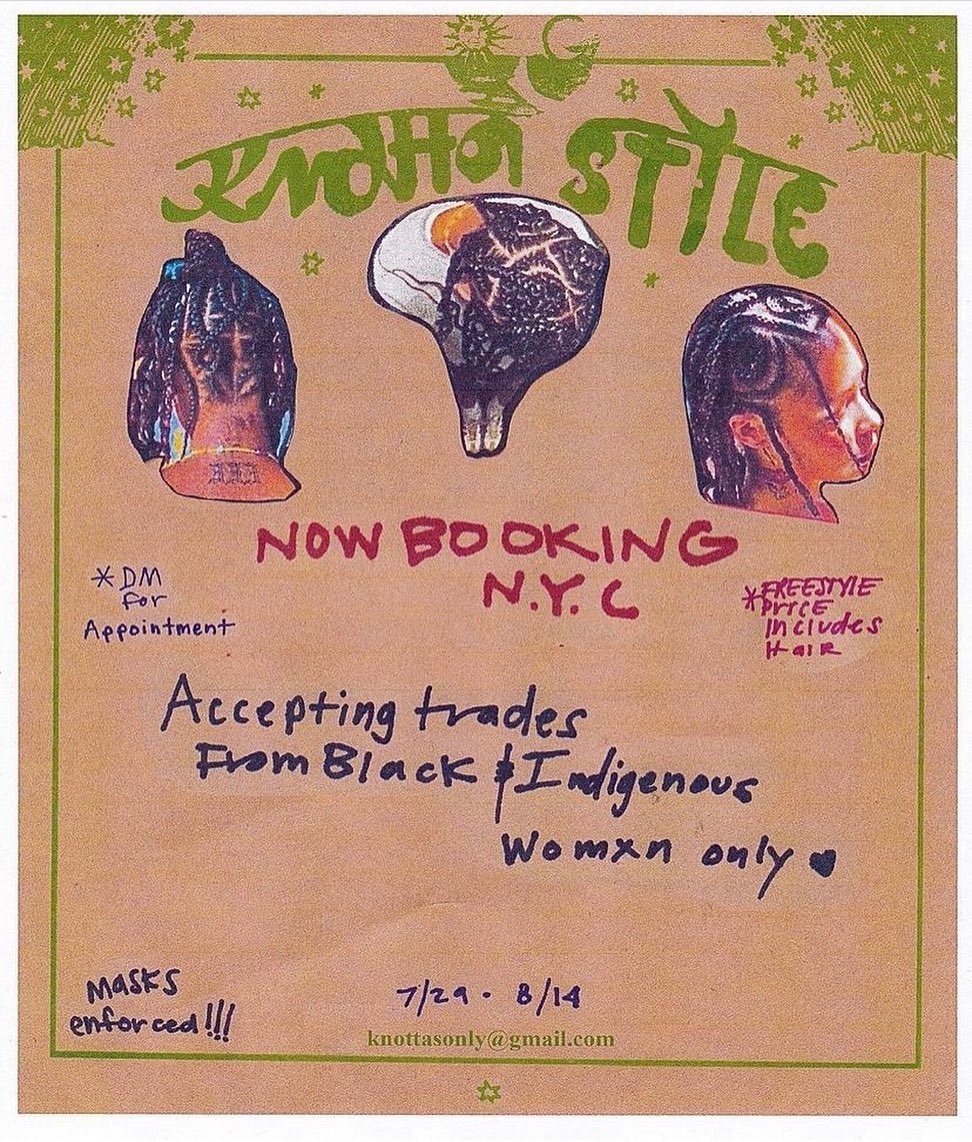 STYLE
NOW BOOKING
N.Y.C
*DM
for
Appointment
*FREESTYLE
PrICE
includes
HaiR
Accepting trades
From Black & Indigenous
Womxn only ♥
Masks
enforced!!!
7/29 - 8/14
knottasonly@gmail.com